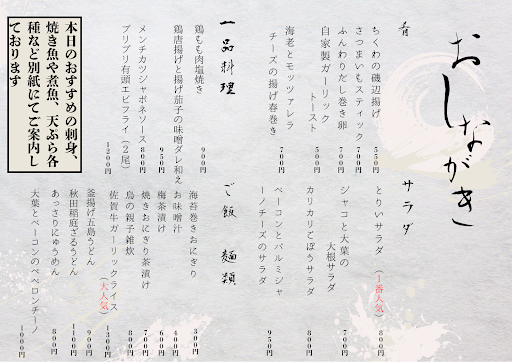 おしながき
肴
ちくわの磯辺揚げ 550円
さつまいもスティック 700円
ふんわりだし巻き卵 700円
自家製ガーリック
トースト 500円
海老とモッツァレラ
チーズの揚げ春巻き 700円
一品料理
鶏もも肉塩焼き 900円
鶏唐揚げと揚げ茄子の味噌ダレ和え 950円
メンチカツシャポネソース 800円
プリプリ有頭エビフライ(2尾) 1200円
本日のおすすめの刺身、
焼き魚や煮魚、天ぷら各
種など別紙にてご案内し
ております
サラダ
とりいサラダ (1番人気) 800円
シャコと大葉の
大根サラダ 700円
カリカリごぼうサラダ 800円
ベーコンとパルミジャ
ーノチーズのサラダ 950円
ご飯 麺類
海苔巻きおにぎり 300円
お味噌汁 400円
梅茶漬け 600円
焼きおにぎり茶漬け 700円
鳥の親子雑炊 800円
佐賀牛ガーリックライス (大人気) 1300円
釜揚げ五島うどん 900円
秋田稲庭ざるうどん 1100円
あっさりにゅうめん 800円
大葉とベーコンのペペロンチーノ 1000円